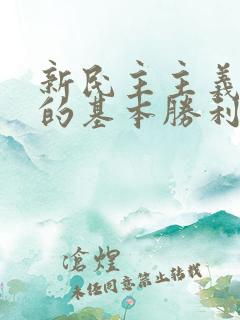 新民主主義
的基本勝利
滄煌
未经同意禁止转载